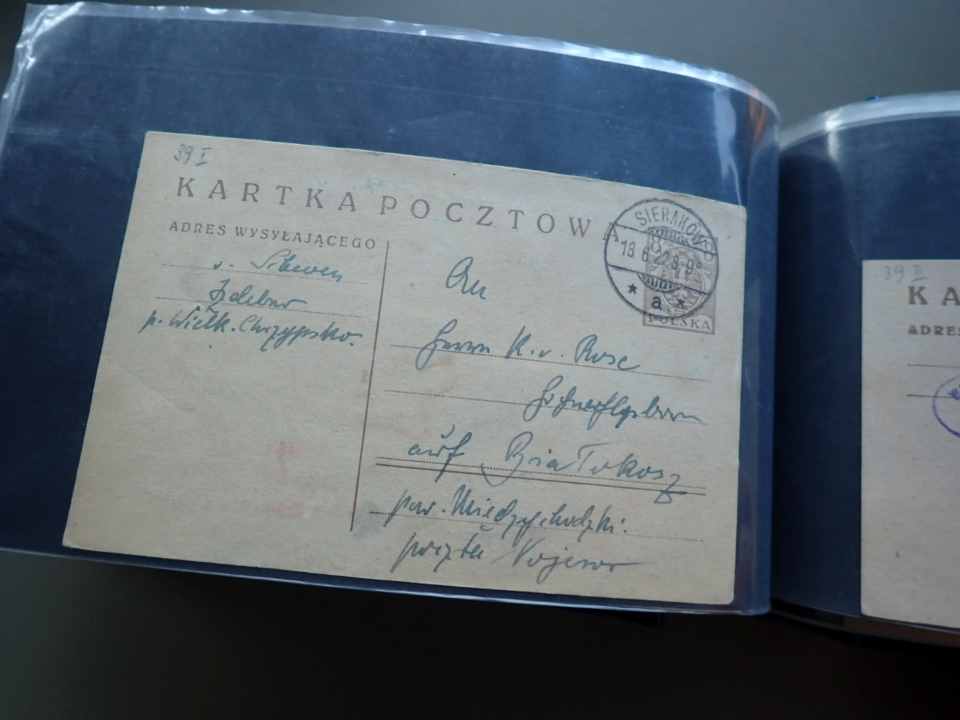 39 I
KARTKA POCZTOWA
ADRES WYSYŁAJĄCEGO
p. Wielk. Chrzypsko.
SIERAKOW
18.6.22.8-9
* a *
POLSKA
An
Herrn K. v. Rose
auf Białokosz
pow. Międzychodzki.
poczta
39 II
KA
ADRES